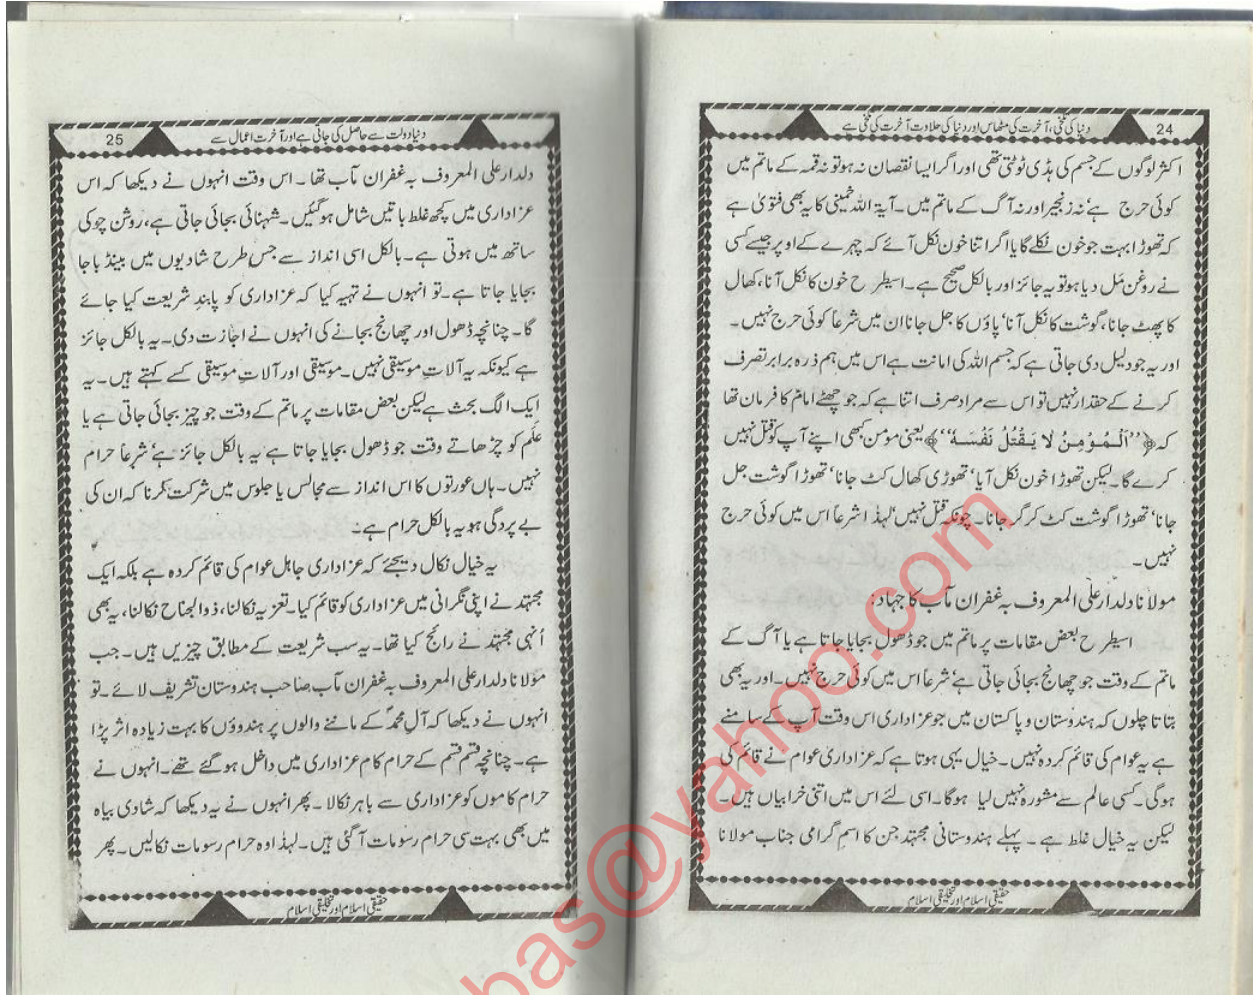 24
دنیا کی تلخی، آخرت کی مٹھاس اور دنیا کی حلاوت آخرت کی تلخی ہے
اکثر لوگوں کے جسم کی ہڈی ٹوٹتی تھی اور اگر ایسا نقصان نہ ہو تو نہ قمہ کے ماتم میں
کوئی حرج ہے' نہ زنجیر اور نہ آگ کے ماتم میں۔ آیۃ اللہ خمینی کا یہ بھی فتویٰ ہے
کہ تھوڑا بہت جو خون نکلے گا یا اگر اتنا خون نکل آئے کہ چہرے کے اوپر جیسے کسی
نے روغن مَل دیا ہو تو یہ جائز اور بالکل صحیح ہے۔ اسیطرح خون کا نکل آنا، کھال
کا پھٹ جانا، گوشت کا نکل آنا' پاؤں کا جل جانا ان میں شرعاً کوئی حرج نہیں۔
اور یہ جو دلیل دی جاتی ہے کہ جسم اللہ کی امانت ہے اس میں ہم ذرہ برابر تصرف
کرنے کے حقدار نہیں تو اس سے مراد صرف اتنا ہے کہ جو چھٹے امامؑ کا فرمان تھا
کہ ﴿''اَلْمُؤْمِنُ لَا یَقْتُلُ نَفْسَهٗ''﴾ یعنی مومن کبھی اپنے آپ کو قتل نہیں
کرے گا۔ لیکن تھوڑا خون نکل آیا' تھوڑی کھال کٹ جانا' تھوڑا گوشت جل
جانا' تھوڑا گوشت کٹ کر گر جانا۔ چونکہ قتل نہیں' لہٰذا شرعاً اس میں کوئی حرج
نہیں۔
مولانا دلدار علی المعروف بہ غفران مآب کا جہاد:
اسیطرح بعض مقامات پر ماتم میں جو ڈھول بجایا جاتا ہے یا آگ کے
ماتم کے وقت جو چھانج بجائی جاتی ہے' شرعاً اس میں کوئی حرج نہیں۔ اور یہ بھی
بتاتا چلوں کہ ہندوستان و پاکستان میں جو عزاداری اس وقت آپ کے سامنے
ہے یہ عوام کی قائم کردہ نہیں۔ خیال یہی ہوتا ہے کہ عزاداری عوام نے قائم کی
ہوگی۔ کسی عالم سے مشورہ نہیں لیا ہوگا۔ اسی لئے اس میں اتنی خرابیاں ہیں۔
لیکن یہ خیال غلط ہے۔ پہلے ہندوستانی مجتہد جن کا اسم گرامی جناب مولانا
حقیقی اسلام اور تخلیقی اسلام
25
دنیا دولت سے حاصل کی جاتی ہے اور آخرت اعمال سے
دلدار علی المعروف بہ غفران مآب تھا۔ اس وقت انہوں نے دیکھا کہ اس
عزاداری میں کچھ غلط باتیں شامل ہوگئیں۔ شہنائی بجائی جاتی ہے، روشن چوکی
ساتھ میں ہوتی ہے۔ بالکل اسی انداز سے جس طرح شادیوں میں بینڈ باجا
بجایا جاتا ہے۔ تو انہوں نے تہیہ کیا کہ عزاداری کو پابندِ شریعت کیا جائے
گا۔ چنانچہ ڈھول اور چھانج بجانے کی انہوں نے اجازت دی۔ یہ بالکل جائز
ہے کیونکہ یہ آلاتِ موسیقی نہیں۔ موسیقی اور آلاتِ موسیقی کسے کہتے ہیں۔ یہ
ایک الگ بحث ہے لیکن بعض مقامات پر ماتم کے وقت جو چیز بجائی جاتی ہے یا
عَلم کو چڑھاتے وقت جو ڈھول بجایا جاتا ہے یہ بالکل جائز ہے' شرعاً حرام
نہیں۔ ہاں عورتوں کا اس انداز سے مجالس یا جلوس میں شرکت کرنا کہ ان کی
بے پردگی ہو یہ بالکل حرام ہے۔
یہ خیال نکال دیجئے کہ عزاداری جاہل عوام کی قائم کردہ ہے بلکہ ایک
مجتہد نے اپنی نگرانی میں عزاداری کو قائم کیا۔ تعزیہ نکالنا، ذوالجناح نکالنا، یہ بھی
اُنہی مجتہد نے رائج کیا تھا۔ یہ سب شریعت کے مطابق چیزیں ہیں۔ جب
مولانا دلدار علی المعروف بہ غفران مآب صاحب ہندوستان تشریف لائے۔ تو
انہوں نے دیکھا کہ آلِ محمدؐ کے ماننے والوں پر ہندوؤں کا بہت زیادہ اثر پڑا
ہے۔ چنانچہ قسم قسم کے حرام کام عزاداری میں داخل ہوگئے تھے۔ انہوں نے
حرام کاموں کو عزاداری سے باہر نکالا۔ پھر انہوں نے یہ دیکھا کہ شادی بیاہ
میں بھی بہت سی حرام رسومات آگئی ہیں۔ لہٰذا وہ حرام رسومات نکالیں۔ پھر
حقیقی اسلام اور تخلیقی اسلام
bas@yahoo.com